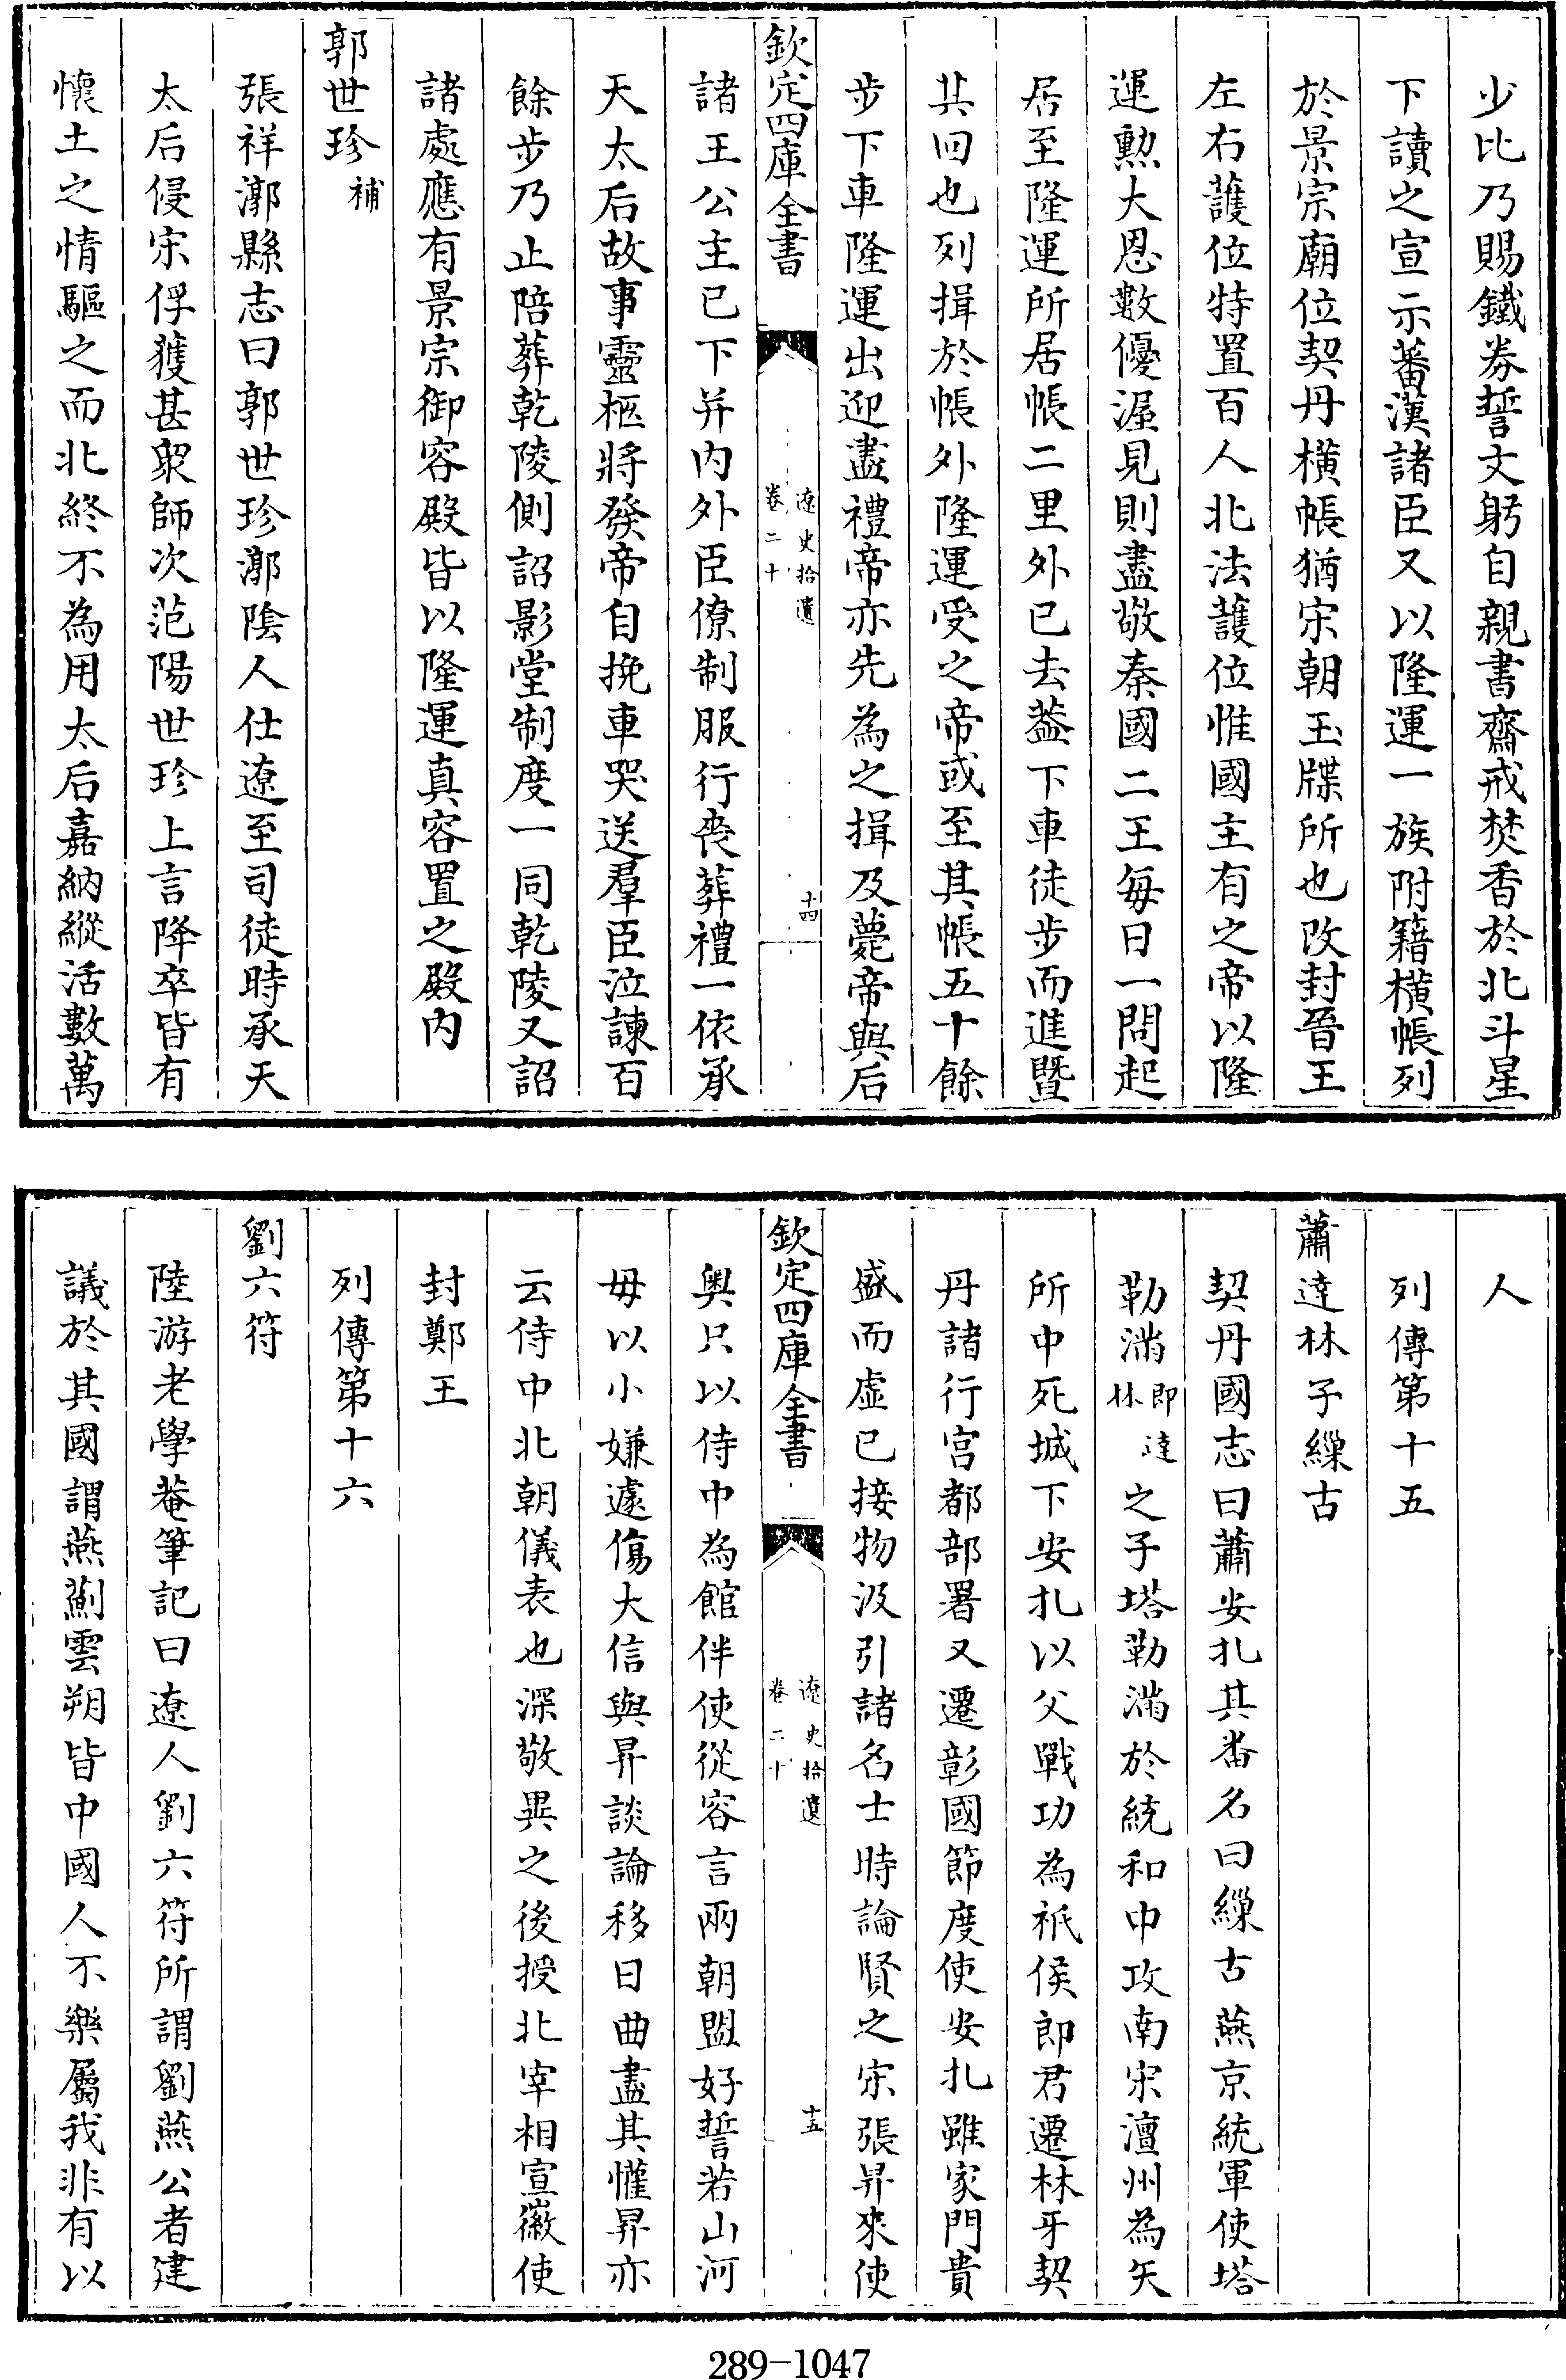 少比乃賜鐵券誓文躬自親書齋戒焚香於北斗星
下讀之宣示蕃漢諸臣又以隆運一族附籍橫帳列
於景宗廟位契丹橫帳猶宋朝玉牒所也改封晉王
左右護位特置百人北法護位惟國主有之帝以隆
運勲大恩數優渥見則盡敬秦國二王每日一問起
居至隆運所居帳二里外已去葢下車徒步而進暨
其回也列揖於帳外隆運受之帝或至其帳五十餘
步下車隆運出迎盡禮帝亦先為之揖及薨帝與后
欽定四庫全書
遼史拾遺
卷二十
十四
諸王公主已下并内外臣僚制服行喪葬禮一依承
天太后故事靈柩將發帝自挽車哭送羣臣泣諫百
餘步乃止陪葬乾陵側詔影堂制度一同乾陵又詔
諸處應有景宗御容殿皆以隆運真容置之殿内
郭世珍補
張祥漷縣志曰郭世珍漷隂人仕遼至司徒時承天
太后侵宋俘獲甚衆師次范陽世珍上言降卒皆有
懷土之情驅之而北終不為用太后嘉納縱活數萬
人
列傳第十五
蕭達林子繅古
契丹國志曰蕭安扎其番名曰繅古燕京統軍使塔
勒滿即達林之子塔勒滿於統和中攻南宋澶州為矢
所中死城下安扎以父戰功為祇侯郎君遷林牙契
丹諸行宫都部署又遷彰國節度使安扎雖家門貴
盛而虛已接物汲引諸名士時論賢之宋張昇來使
欽定四庫全書
遼史拾遺
卷二十
十五
奥只以侍中為館伴使從容言兩朝盟好誓若山河
毋以小嫌遽傷大信與昇談論移日曲盡其懽昇亦
云侍中北朝儀表也深敬異之後授北宰相宣徽使
封鄭王
列傳第十六
劉六符
陸游老學菴筆記曰遼人劉六符所謂劉燕公者建
議於其國謂燕薊雲朔皆中國人不樂屬我非有以
289-1047